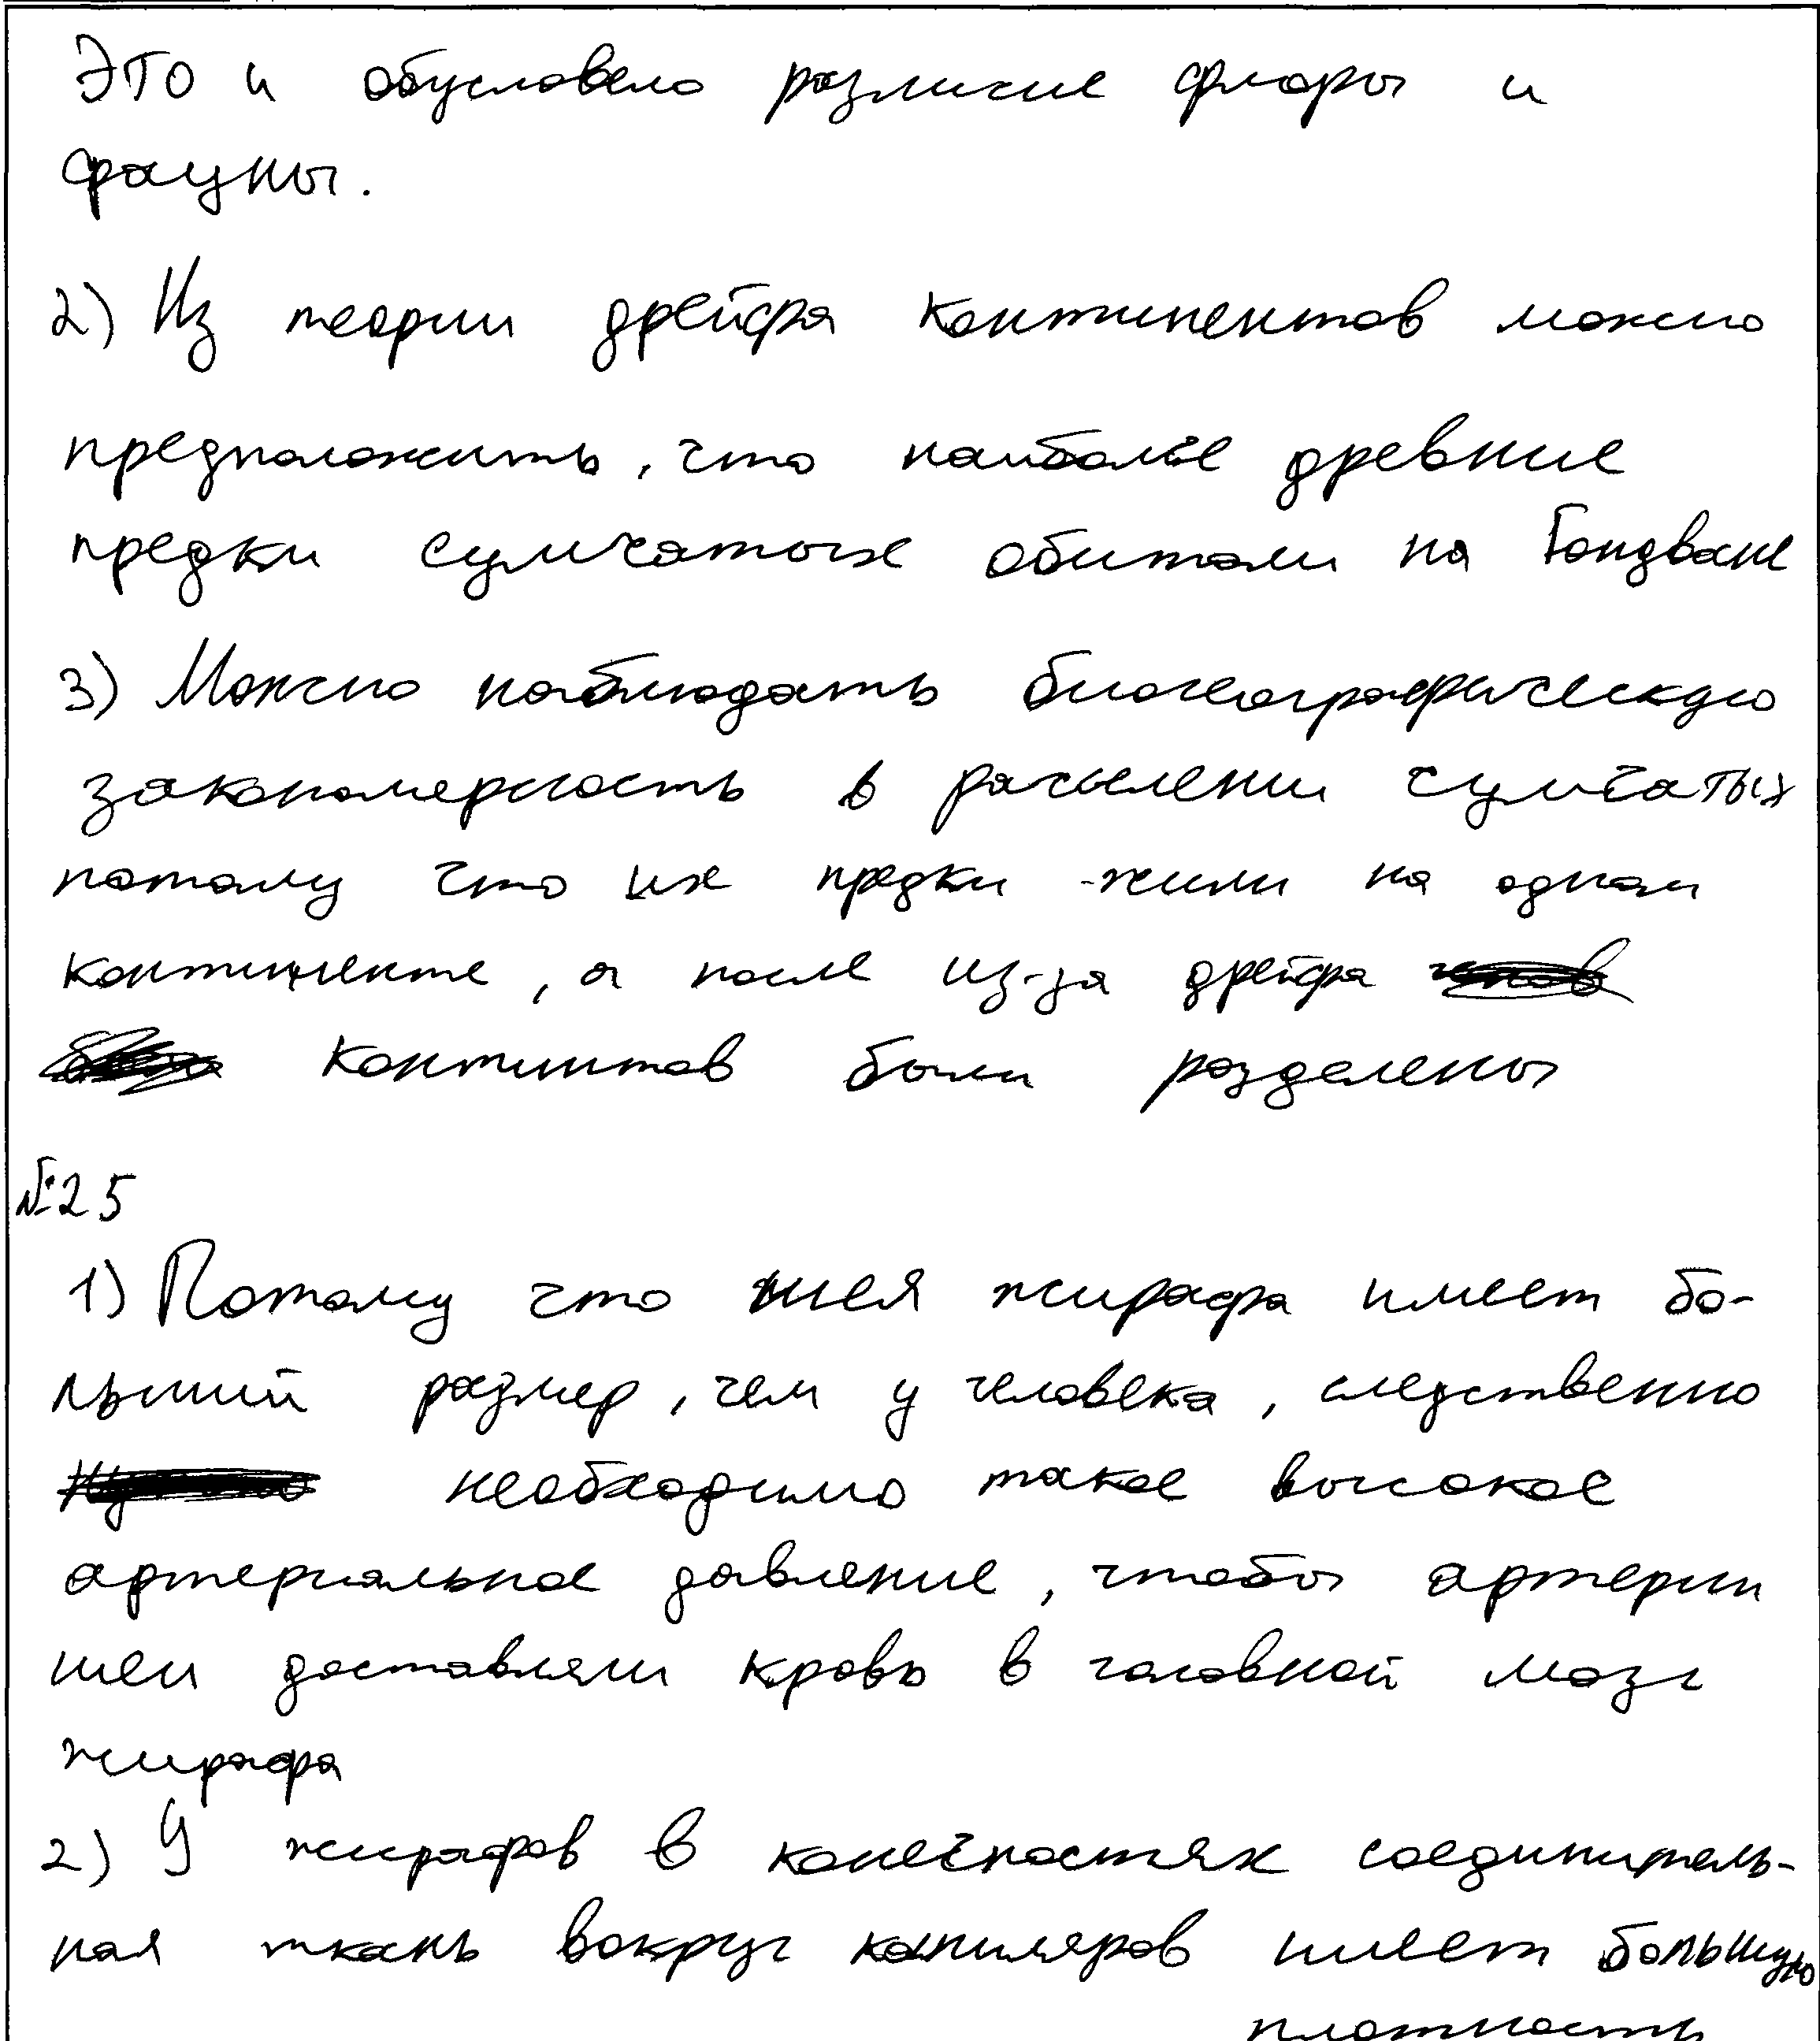 Это и обусловело различие флоры и
фауны.
2) Из теории дрейфа континентов можно
предположить, что наиболее древние
предки сумчатых обитали на Гондване
3) Можно наблюдать биогеографическую
закономерность в расселении сумчатых
потому что их предки жили на одном
континенте, а после из-за дрейфа
континтов были разделены
№25
1) Потому что шея жирафа имеет бо-
льший размер, чем у человека, следственно
необходимо такое высокое
артериальное давление, чтобы артерии
шеи доставляли кровь в головной мозг
жирафа
2) У жирафов в конечностях соединитель-
ная ткань вокруг капиляров имеет большую
плотность